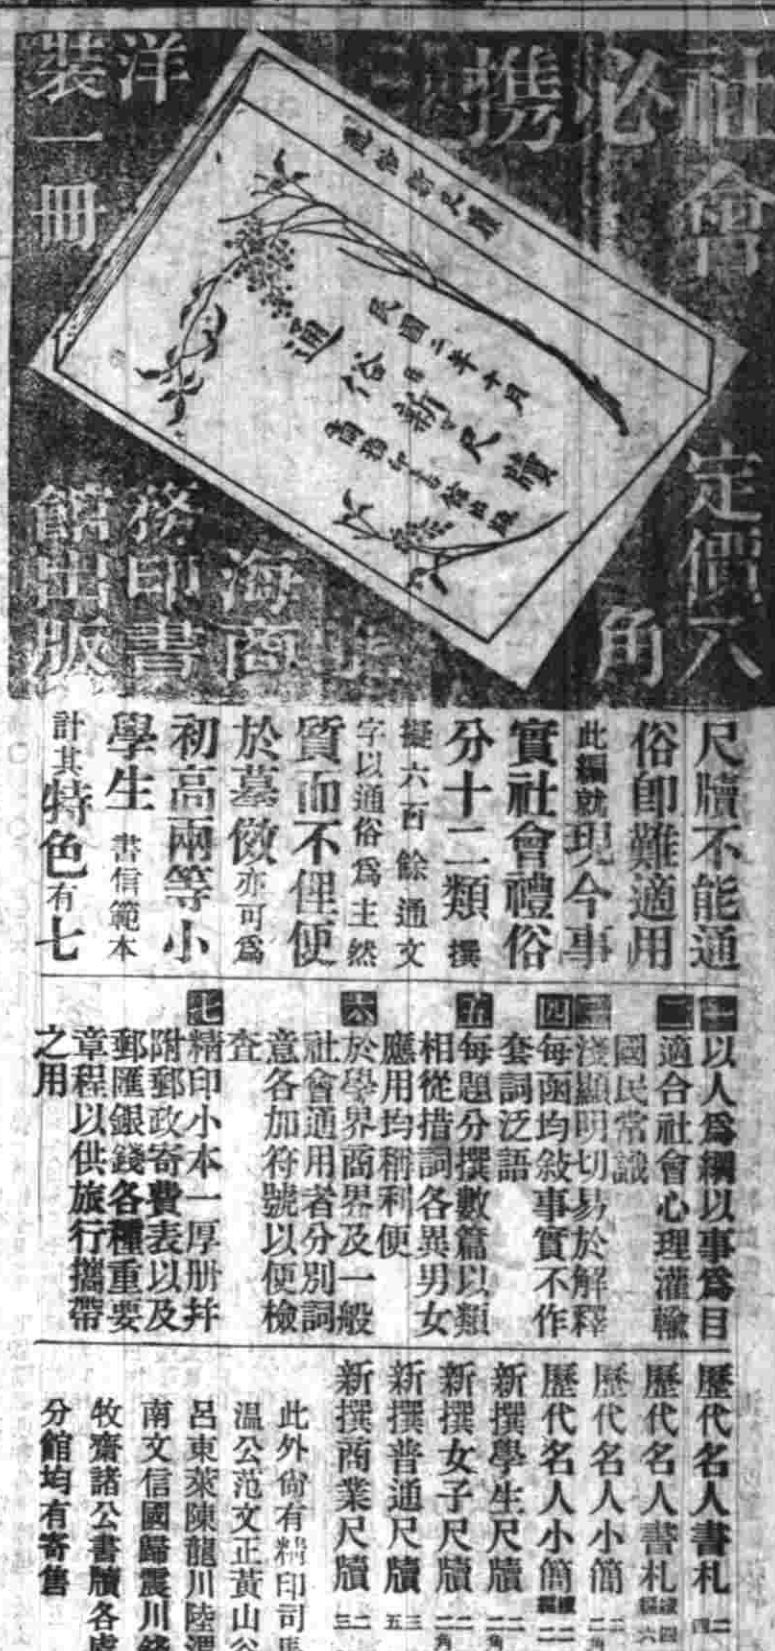 社會
必
携
定價六
角
洋
裝一冊
海商
務印書
館出版
通俗新尺牘
民國二年十月
通俗新尺牘
商務印書館出版
尺牘不能通
俗卽難適用
此編就現今事
實社會禮俗
分十二類撰
擬六百餘通文
字以通俗爲主然
質而不俚便
於摹倣亦可爲
初高兩等小
學生書信範本
計其特色有七
一以人爲綱以事爲目
二適合社會心理灌輸
國民常識
三淺顯明切易於解釋
四每函均敍事實不作
套詞泛語
五每題分撰數篇以類
相從措詞各異男女
應用均稱利便
六於學界商界及一般
社會通用者分別詞
意各加符號以便檢
查
七精印小本一厚册幷
附郵政寄費表以及
郵匯銀錢各種重要
章程以供旅行攜帶
之用
歷代名人書札 二
歷代名人書札續編
歷代名人小簡 二
歷代名人小簡續編 二
新撰學生尺牘 二角
新撰女子尺牘 二角
新撰普通尺牘
新撰商業尺牘
此外尙有精印司馬
溫公范文正黃山谷
呂東萊陳龍川陸渭
南文信國歸震川錢
牧齋諸公書牘各處
分館均有寄售